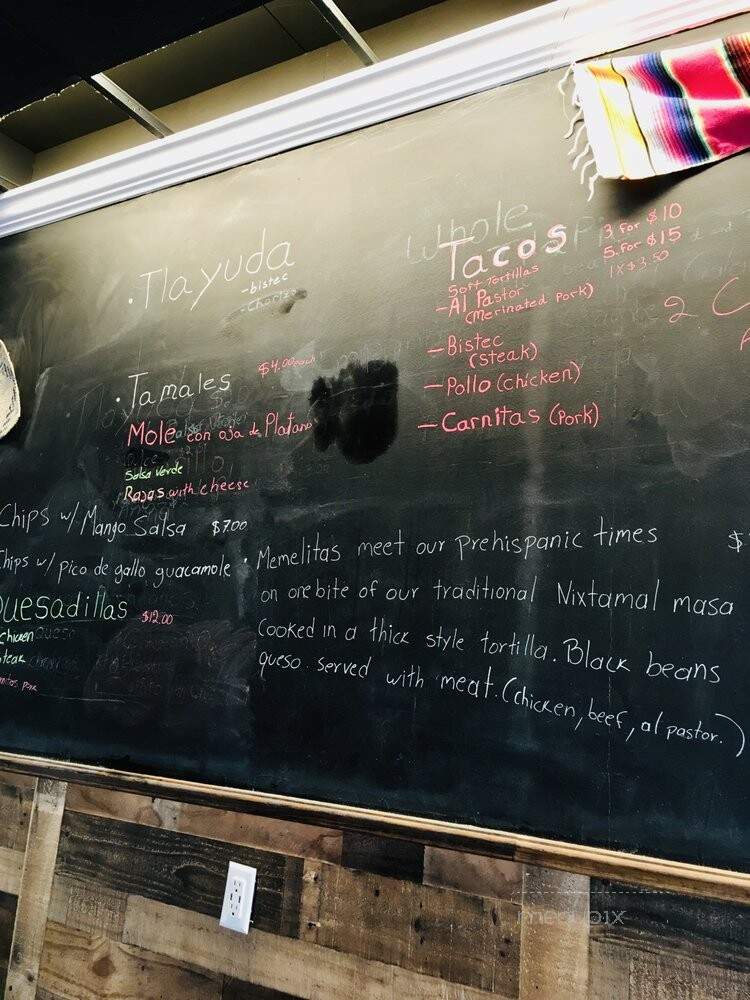 Tlayuda
-bistec
-Chorizo
Whole
Tacos
3 for $10
5 for $15
1x $3.50
Soft Tortillas
-Al Pastor
(Merinated Pork)
-Bistec
(Steak)
-Pollo (chicken)
-Carnitas (Pork)
2 C
Tamales $4.00 each
Mole con oja de Platano
Salsa Verde
Rajas with cheese
Chips w/ Mango Salsa $7.00
Chips w/ pico de gallo guacamole
Quesadillas $12.00
chicken
steak
Memelitas meet our prehispanic times $
on one bite of our traditional Nixtamal masa
Cooked in a thick style tortilla. Black beans
queso served with meat. (chicken, beef, al pastor.)